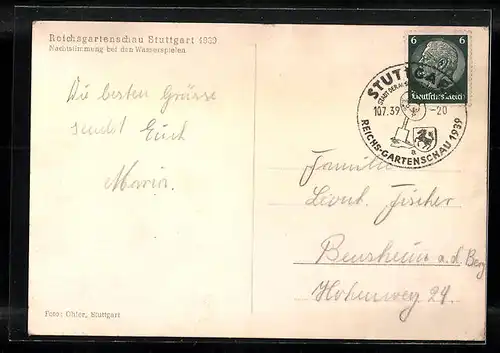 Reichsgartenschau Stuttgart 1939
Nachtstimmung bei den Wasserspielen
Die besten Grüsse
sendet Euch
Maria.
Foto: Ohler, Stuttgart
6 6
Deutsches Reich
STUTTGART
STADT DER AUSL
10.7.39 -20
a
REICHS-GARTENSCHAU 1939
Familie
Leonh. Fischer
Bensheim a. d. Berg
Hohenweg 24.